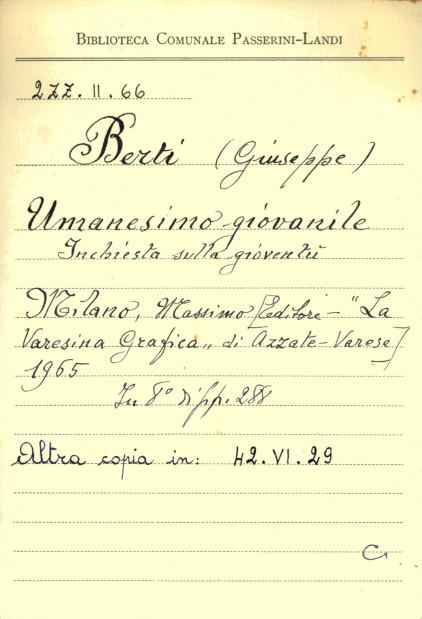 BIBLIOTECA COMUNALE PASSERINI-LANDI
2ZZ.II.66
Berti (Giuseppe)
Umanesimo giovanile
Inchiesta sulla gioventù
Milano, Massimo [Editore - "La
Varesina Grafica„ di Azzate-Varese]
1965
In 8° di pp. 288
Altra copia in: 42.VI.29
C.